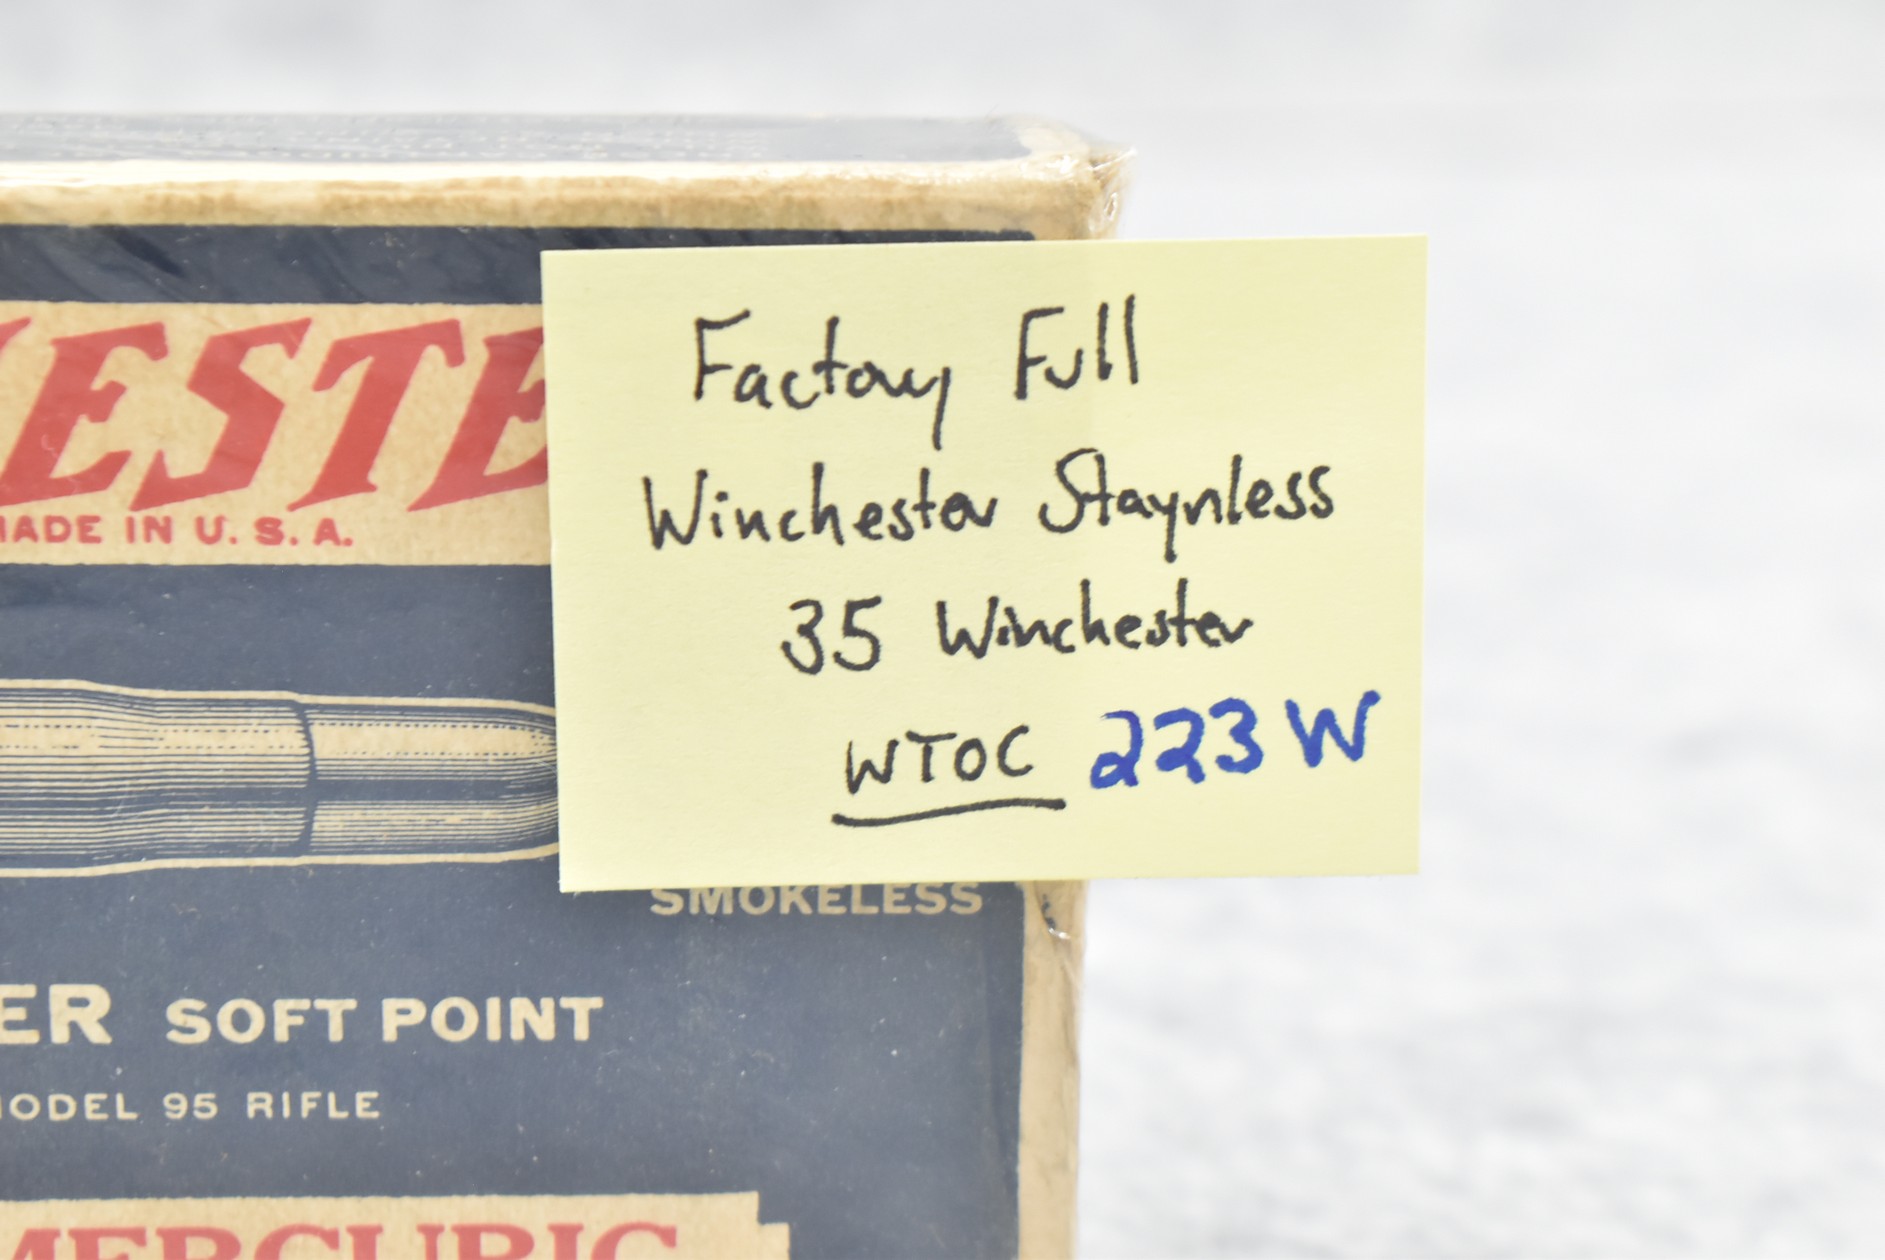 ESTE
MADE IN U.S.A.
Factory Full
Winchester Staynless
35 Winchester
WTOC 223W
SMOKELESS
ER SOFT POINT
MODEL 95 RIFLE
MERCURIC